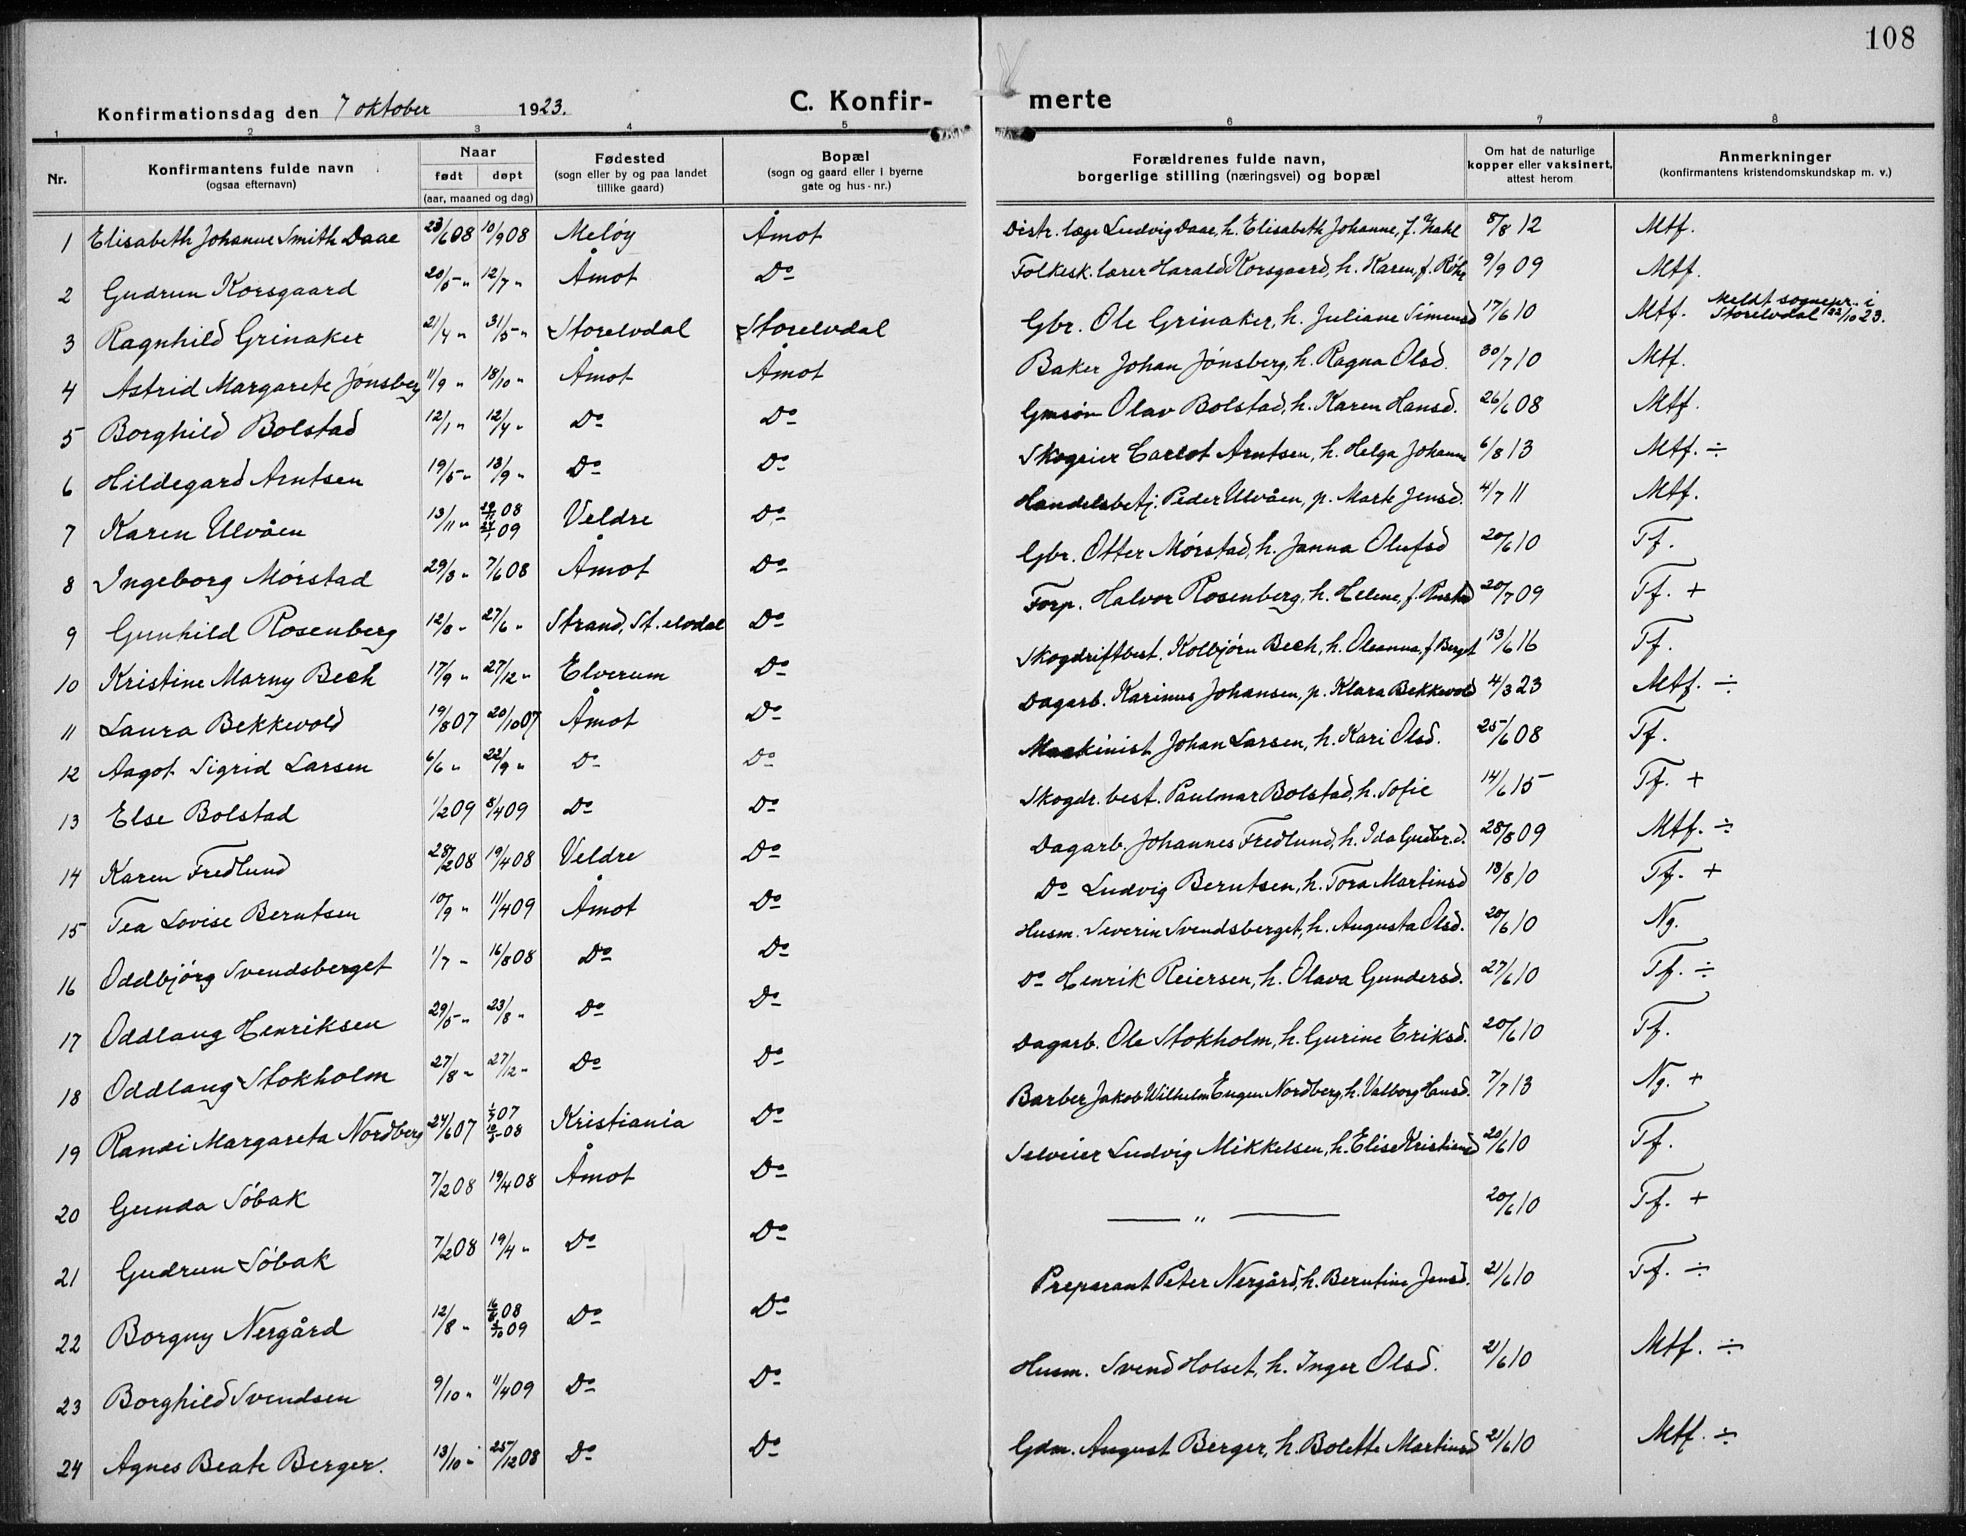 108
Konfirmationsdag den 7 oktober 1923.
C. Konfir-merte
1 2 3 4 5 6 7 8
Nr.
Konfirmantens fulde navn
(ogsaa efternavn)
Naar
født døpt
(aar, maaned og dag)
Fødested
(sogn eller by og paa landet
tillike gaard)
Bopæl
(sogn og gaard eller i byerne
gate og hus-nr.)
Forældrenes fulde navn,
borgerlige stilling (næringsvei) og bopæl
Om hat de naturlige
kopper eller vaksinert,
attest herom
Anmerkninger
(konfirmantens kristendomskundskap m. v.)
1 Elisabeth Johanne Smith Daae 23/6 08 10/9 08 Meløy Åmot Distr. læge Ludvig Daae, h. Elisabeth Johanne, f. Zahl 8/8 12 Mtf.
2 Gudrun Korsgaard 20/5 " 12/7 " Åmot Do Folkesk. lærer Harald Korsgaard, h. Karen, f. Röhr 9/9 09 Mtf.
3 Ragnhild Grinaker 21/4 " 31/5 " Storelvdal Storelvdal Gbr. Ole Grinaker, h. Juliane Simensd 17/6 10 Mtf. Meldt sognepr. i Storelvdal 22/10 23.
4 Astrid Margarete Jønsberg 11/9 " 18/10 " Åmot Åmot Baker Johan Jønsberg, h. Ragna Olsd. 30/7 10 Mtf.
5 Borghild Bolstad 12/1 " 12/4 " Do Do Gmsøn Olav Bolstad, h. Karen Hansd. 26/6 08 Mtf.
6 Hildegard Arntsen 19/5 " 13/9 " Do Do Skogeier Carlot Arntsen, h. Helga Johanne 6/8 13 Mtf. ÷
7 Karen Ulvåen 13/11 " 08 09 Veldre Do Handelsbetj. Peder Ulvåen, p. Marte Jensd. 4/7 11 Mtf.
8 Ingeborg Mørstad 29/3 " 7/6 08 Åmot Do Gbr. Otter Mørstad, h. Janna Olufsd 20/6 10 Tf.
9 Gunhild Rosenberg 12/8 " 27/6 " Strand, St. elvdal Do Forp. Halvor Rosenberg, h. Helene, f. 20/7 09 Tf. +
10 Kristine Marny Bech 17/9 " 27/12 " Elverum Do Skogdriftbest. Kolbjørn Bech, h. Oleanna, f Berget 13/6 16 Tf.
11 Laura Bekkevold 19/8 07 20/10 07 Åmot Do Dagarb. Karinus Johansen, p. Klara Bekkevold 4/3 23 Mtf. ÷
12 Aagot Sigrid Larsen 6/6 " 22/9 " Do Do Maskinist Johan Larsen, h. Kari Olsd. 25/6 08 Tf.
13 Else Bolstad 1/2 09 8/4 09 Do Do Skogdr. best. Paulmar Bolstad, h. Sofie 14/6 15 Tf. +
14 Karen Fredlund 28/2 08 19/4 08 Veldre Do Dagarb. Johannes Fredlund, h. Ida Gudbr.d. 28/8 09 Mtf. ÷
15 Tea Lovise Berntsen 10/9 " 11/4 09 Åmot Do Do Ludvig Berntsen, h. Tora Martinsd 13/8 10 Tf. +
16 Oddbjørg Svendsberget 1/7 " 16/8 08 Do Do Husm. Severin Svendsberget, h. Augusta Olsd. 20/6 10 Ng.
17 Oddlaug Henriksen 29/5 " 23/8 " Do Do Do Henrik Reiersen, h. Olava Gundersd. 27/6 10 Tf. ÷
18 Oddlaug Stokholm 27/8 " 27/12 " Do Do Dagarb. Ole Stokholm, h. Gurine Eriksd. 20/6 10 Tf.
19 Randi Margareta Nordberg 24/6 07 07 08 Kristiania Do Barber Jakob Wilhelm Eugen Nordberg, h. Valborg Hansd. 7/7 13 Ng. +
20 Gunda Søbak 7/2 08 19/4 08 Åmot Do Selveier Ludvig Mikkelsen, h. Elise Kristiansd 20/6 10 Tf.
21 Gudrun Søbak 7/2 08 19/4 " Do Do — " — 20/6 10 Tf. +
22 Borgny Nergård 12/8 " 08 09 Do Do Preparant Peter Nergård, h. Berntine Jensd. 21/6 10 Tf. ÷
23 Borghild Svendsen 9/10 " 11/4 09 Do Do Husm. Svend Holset, h. Inger Olsd. 21/6 10 Mtf. ÷
24 Agnes Beate Berger. 13/10 " 25/12 08 Do Do Gdm. August Berger, h. Bolette Martinsd 21/6 10 Mtf. ÷